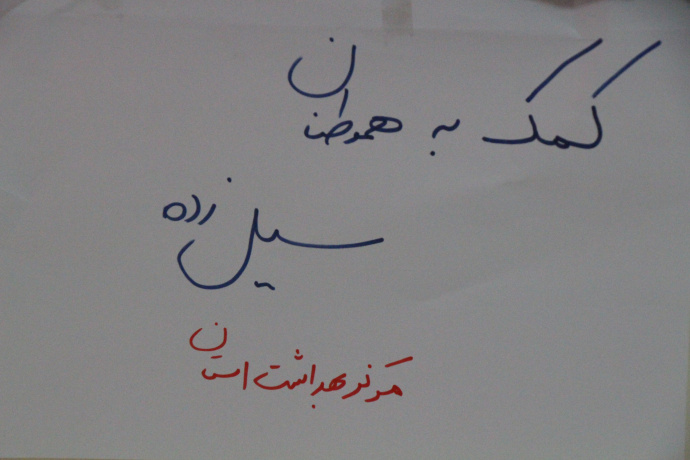 کمک به هموطنان
سیل زده
مرکز بهداشت استان